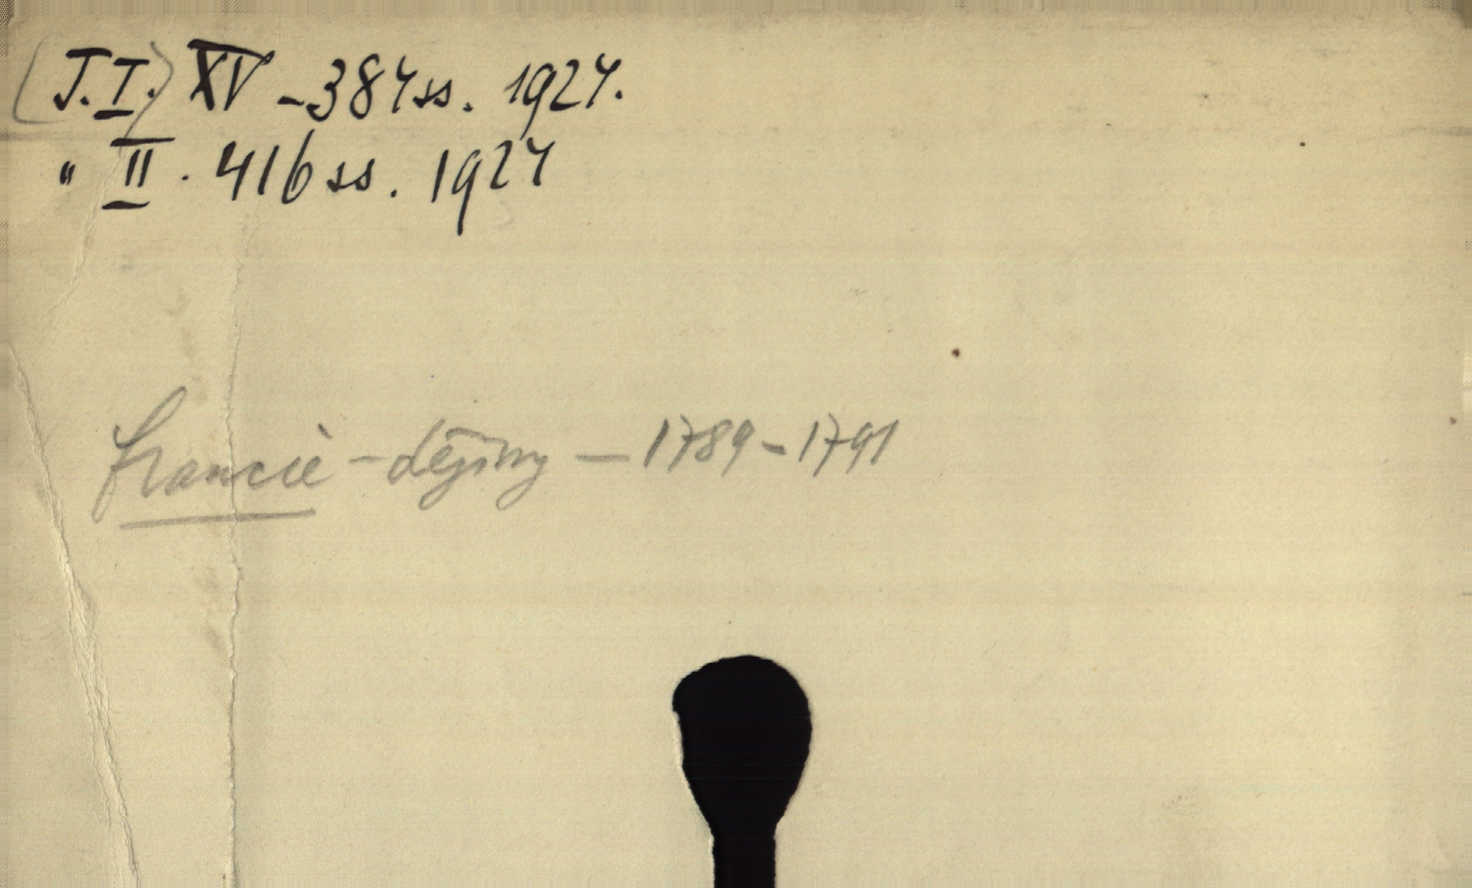 (T.I.) XV - 384 ss. 1924.
" II. 416 ss. 1924
Francie - dějiny - 1789 - 1791